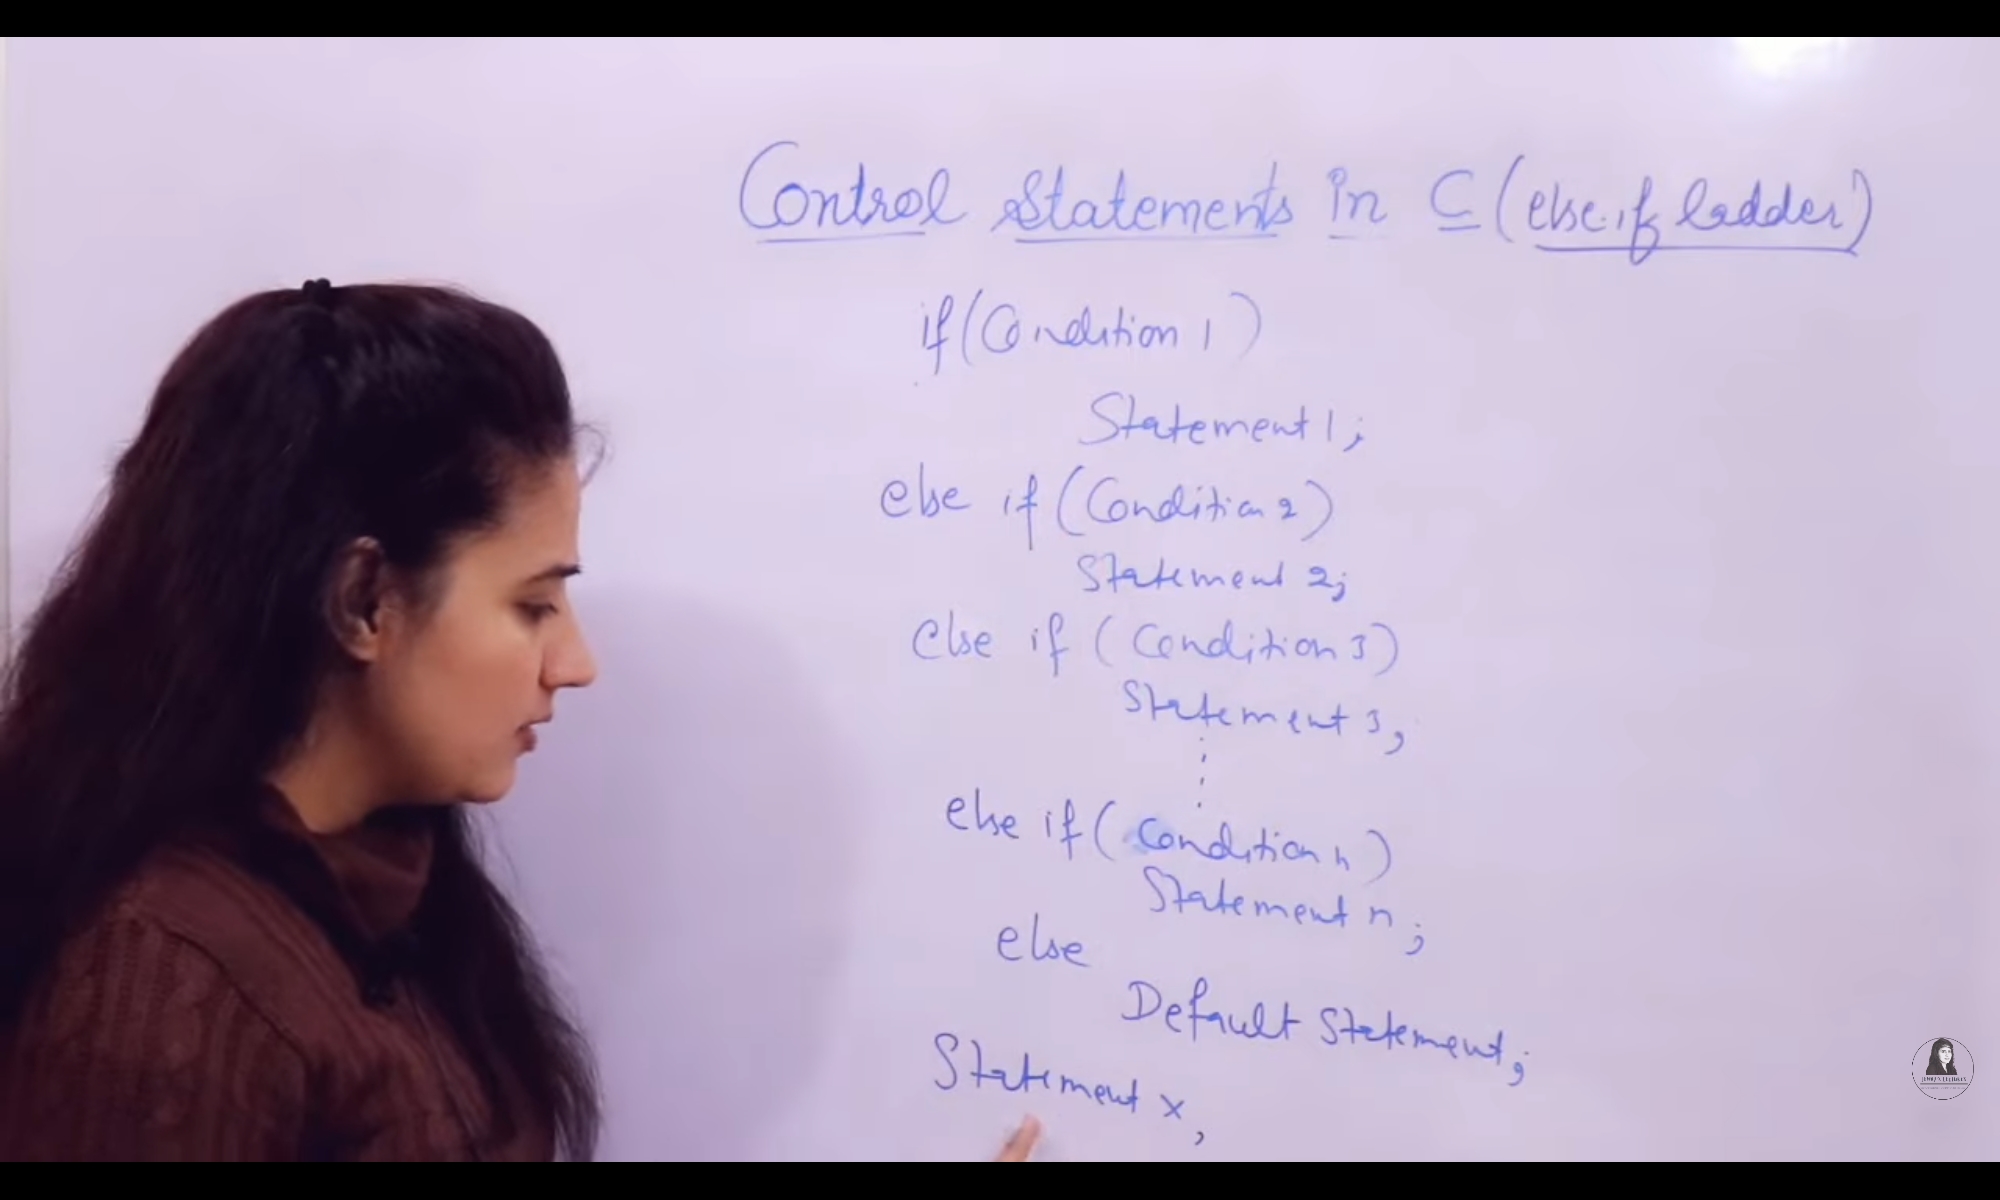 Control Statements in C (else.if ladder)
if (Condition 1)
Statement 1;
else if (Condition 2)
Statement 2;
else if (Condition 3)
Statement 3;
else if (Condition n)
Statement n;
else
Default Statement;
Statement x;